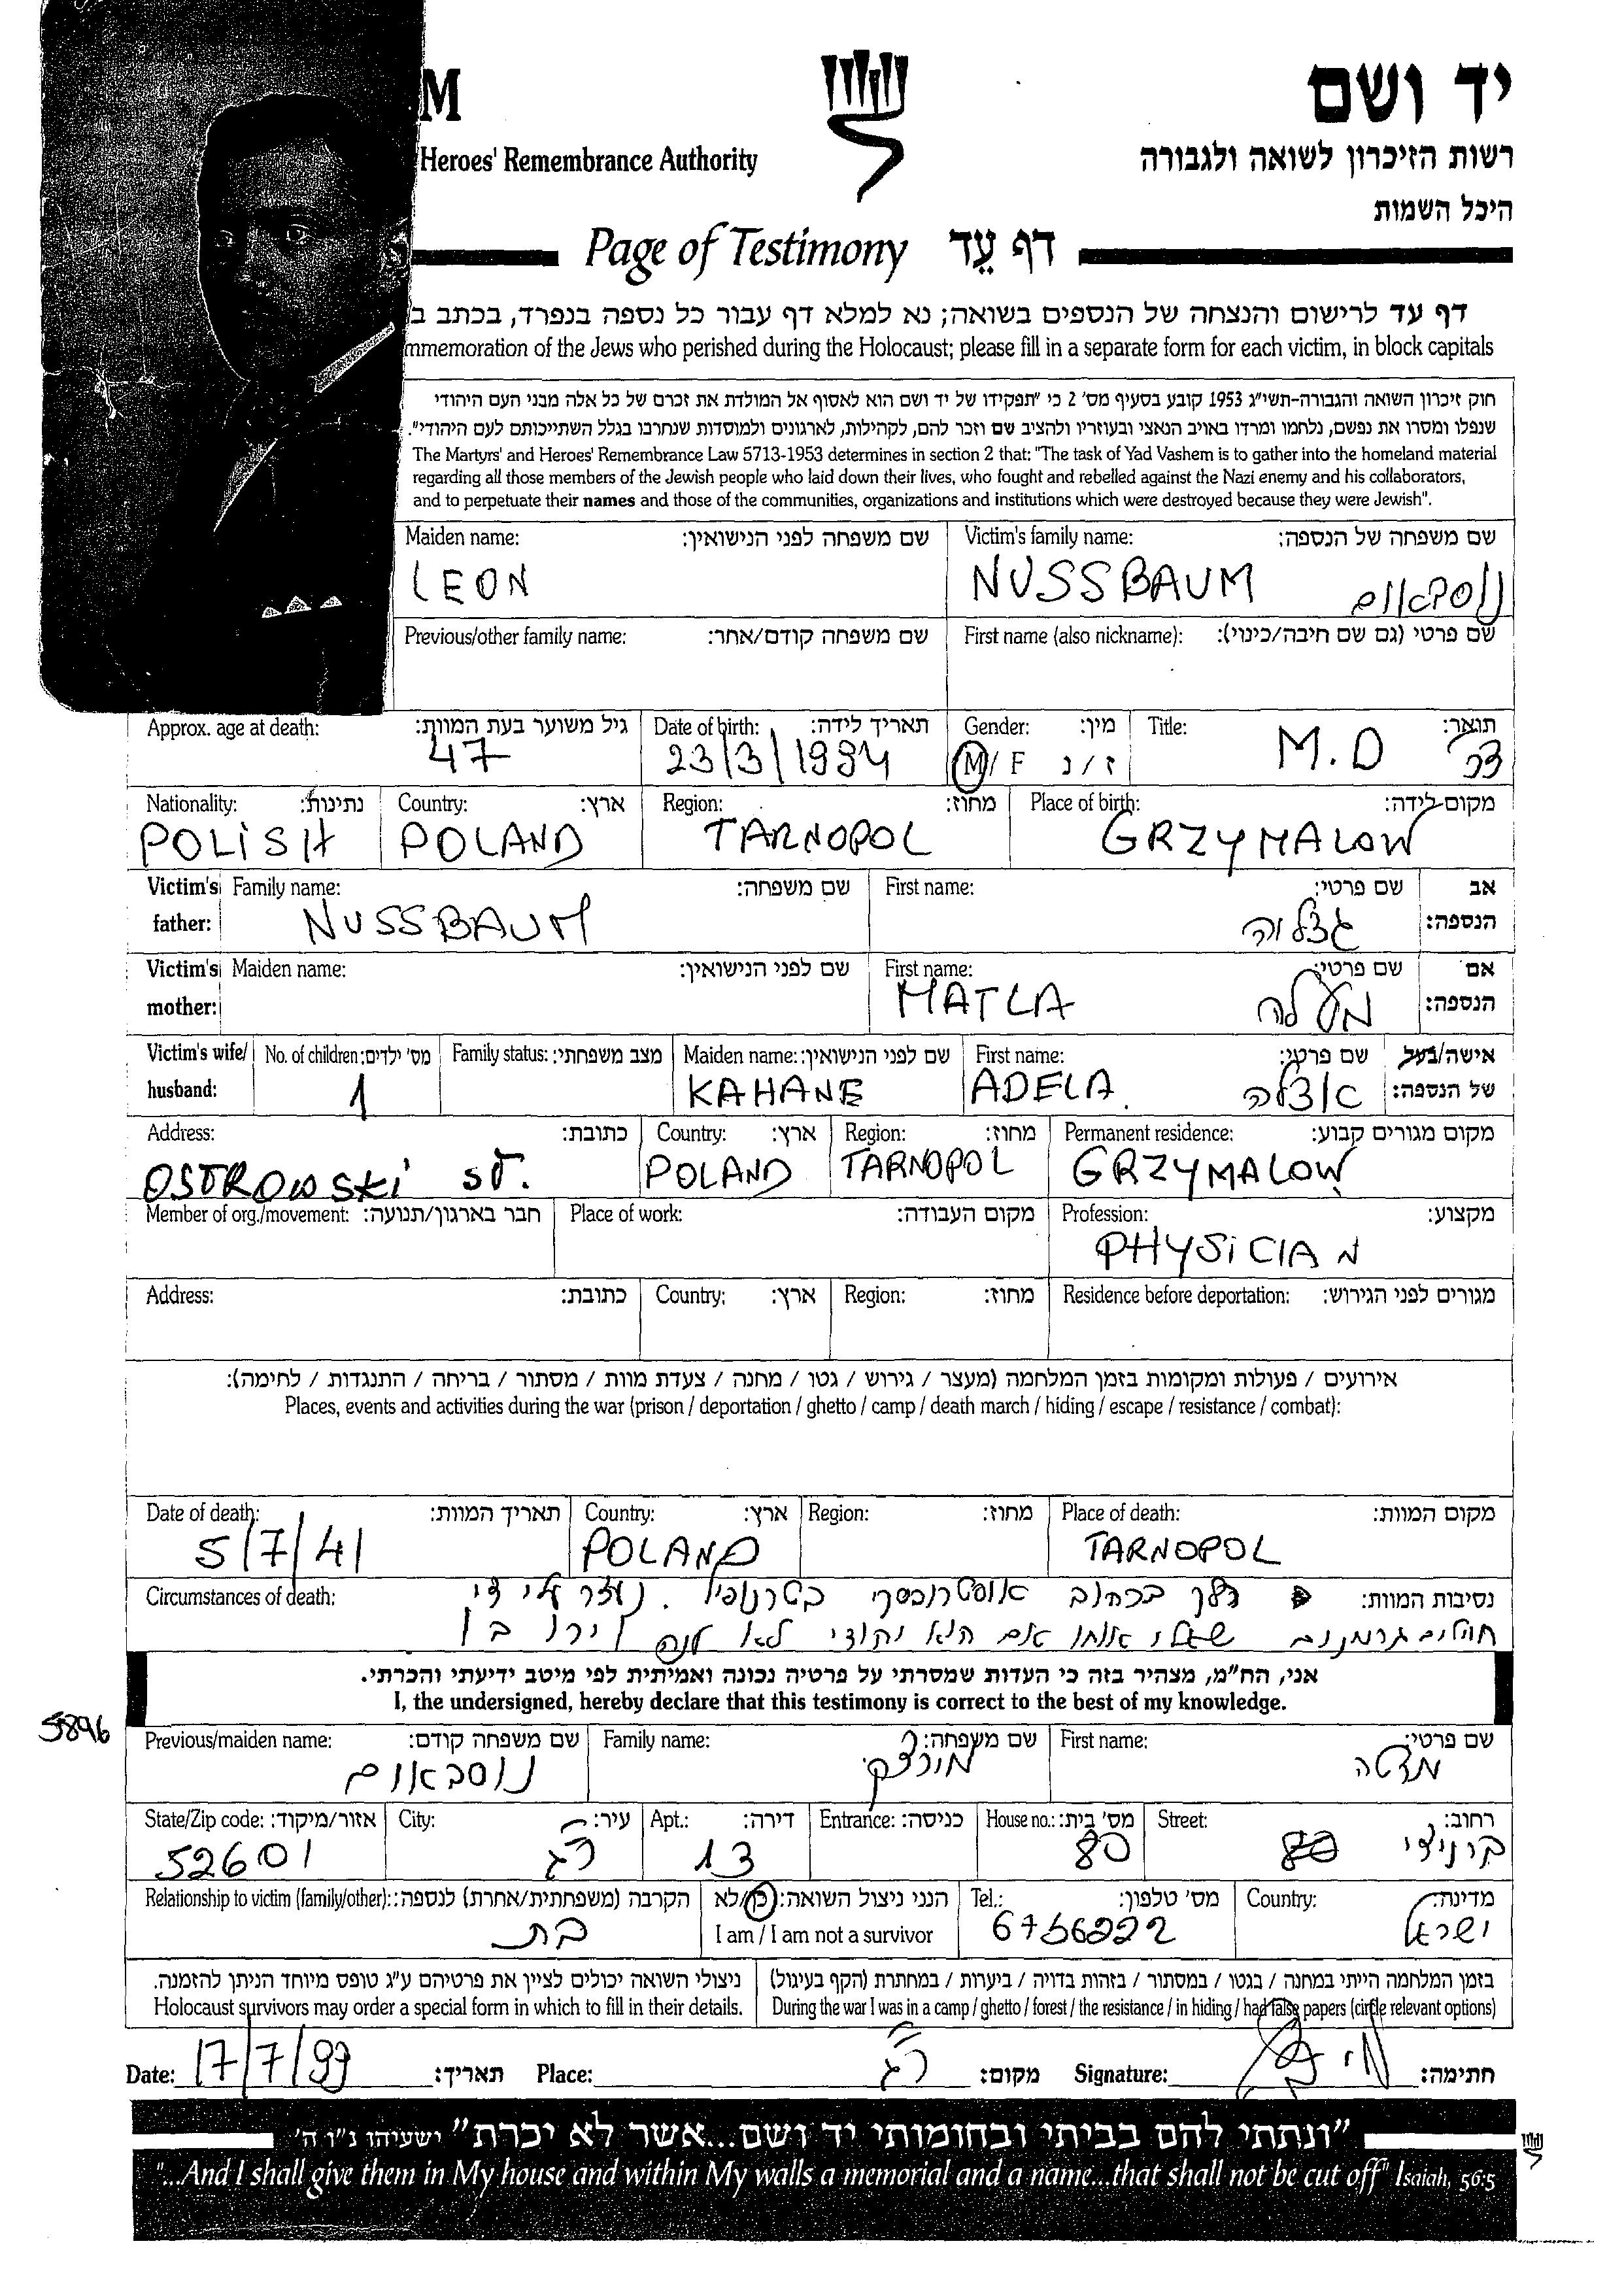 M
יד ושם
Heroes' Remembrance Authority
רשות הזיכרון לשואה ולגבורה
היכל השמות
Page of Testimony דף עֵד
דף עד לרישום והנצחה של הנספים בשואה; נא למלא דף עבור כל נספה בנפרד, בכתב ב
mmemoration of the Jews who perished during the Holocaust; please fill in a separate form for each victim, in block capitals
חוק זיכרון השואה והגבורה-תשי"ג 1953 קובע בסעיף מס' 2 כי "תפקידו של יד ושם הוא לאסוף אל המולדת את זכרם של כל אלה מבני העם היהודי
שנפלו ומסרו את נפשם, נלחמו ומרדו באויב הנאצי ובעוזריו ולהציב שם וזכר להם, לקהילות, לארגונים ולמוסדות שנחרבו בגלל השתייכותם לעם היהודי".
The Martyrs' and Heroes' Remembrance Law 5713-1953 determines in section 2 that: "The task of Yad Vashem is to gather into the homeland material
regarding all those members of the Jewish people who laid down their lives, who fought and rebelled against the Nazi enemy and his collaborators,
and to perpetuate their names and those of the communities, organizations and institutions which were destroyed because they were Jewish".
Maiden name: שם משפחה לפני הנישואין: Victim's family name: שם משפחה של הנספה:
LEON NUSSBAUM נוסבאום
Previous/other family name: שם משפחה קודם/אחר: First name (also nickname): שם פרטי (גם שם חיבה/כינוי):
Approx. age at death: גיל משוער בעת המוות: Date of birth: תאריך לידה: Gender: מין: Title: תואר:
47 23/3/1994 M/ F ז / נ M.D דר
Nationality: נתינות: Country: ארץ: Region: מחוז: Place of birth: מקום לידה:
POLISH POLAND TARNOPOL GRZYMALOW
Victim's Family name: שם משפחה: First name: שם פרטי: אב
father: NUSSBAUM גצלוה הנספה:
Victim's Maiden name: שם לפני הנישואין: First name: שם פרטי: אם
mother: MATLA מטלה הנספה:
Victim's wife/ No. of children: מס' ילדים: Family status: מצב משפחתי: Maiden name: שם לפני הנישואין: First name: שם פרטי: אישה/בעל
husband: 1 KAHANE ADELA אדלה של הנספה:
Address: כתובת: Country: ארץ: Region: מחוז: Permanent residence: מקום מגורים קבוע:
OSTROWSKI ST. POLAND TARNOPOL GRZYMALOW
Member of org./movement: חבר בארגון/תנועה: Place of work: מקום העבודה: Profession: מקצוע:
PHYSICIAN
Address: כתובת: Country: ארץ: Region: מחוז: Residence before deportation: מגורים לפני הגירוש:
אירועים / פעולות ומקומות בזמן המלחמה (מעצר / גירוש / גטו / מחנה / צעדת מוות / מסתור / בריחה / התנגדות / לחימה):
Places, events and activities during the war (prison / deportation / ghetto / camp / death march / hiding / escape / resistance / combat):
Date of death: תאריך המוות: Country: ארץ: Region: מחוז: Place of death: מקום המוות:
5/7/41 POLAND TARNOPOL
Circumstances of death: נסיבות המוות: הלך ברחוב אוסטרובסקי בטרנופול. נעצר על ידי
חיילים גרמנים ששאלו אותו אם הוא יהודי לא ענה וירו בו
אני, הח"מ, מצהיר בזה כי העדות שמסרתי על פרטיה נכונה ואמיתית לפי מיטב ידיעתי והכרתי.
I, the undersigned, hereby declare that this testimony is correct to the best of my knowledge.
5896
Previous/maiden name: שם משפחה קודם: Family name: שם משפחה: First name: שם פרטי:
נוסבאום
State/Zip code: אזור/מיקוד: City: עיר: Apt.: דירה: Entrance: כניסה: House no.: מס' בית: Street: רחוב:
52601 רג 13 80 קריניצי
Relationship to victim (family/other): הקרבה (משפחתית/אחרת) לנספה: הנני ניצול השואה: כן/לא Tel.: מס' טלפון: Country: מדינה:
בת I am / I am not a survivor 6756222 ישראל
ניצולי השואה יכולים לציין את פרטיהם ע"ג טופס מיוחד הניתן להזמנה. בזמן המלחמה הייתי במחנה / בגטו / במסתור / בזהות בדויה / ביערות / במחתרת (הקף בעיגול)
Holocaust survivors may order a special form in which to fill in their details. During the war I was in a camp / ghetto / forest / the resistance / in hiding / had false papers (circle relevant options)
Date: 17/7/99 תאריך: Place: רג מקום: Signature: חתימה:
"ונתתי להם בביתי ובחומותי יד ושם...אשר לא יכרת" ישעיהו נ"ו ה'
"...And I shall give them in My house and within My walls a memorial and a name...that shall not be cut off" Isaiah, 56:5